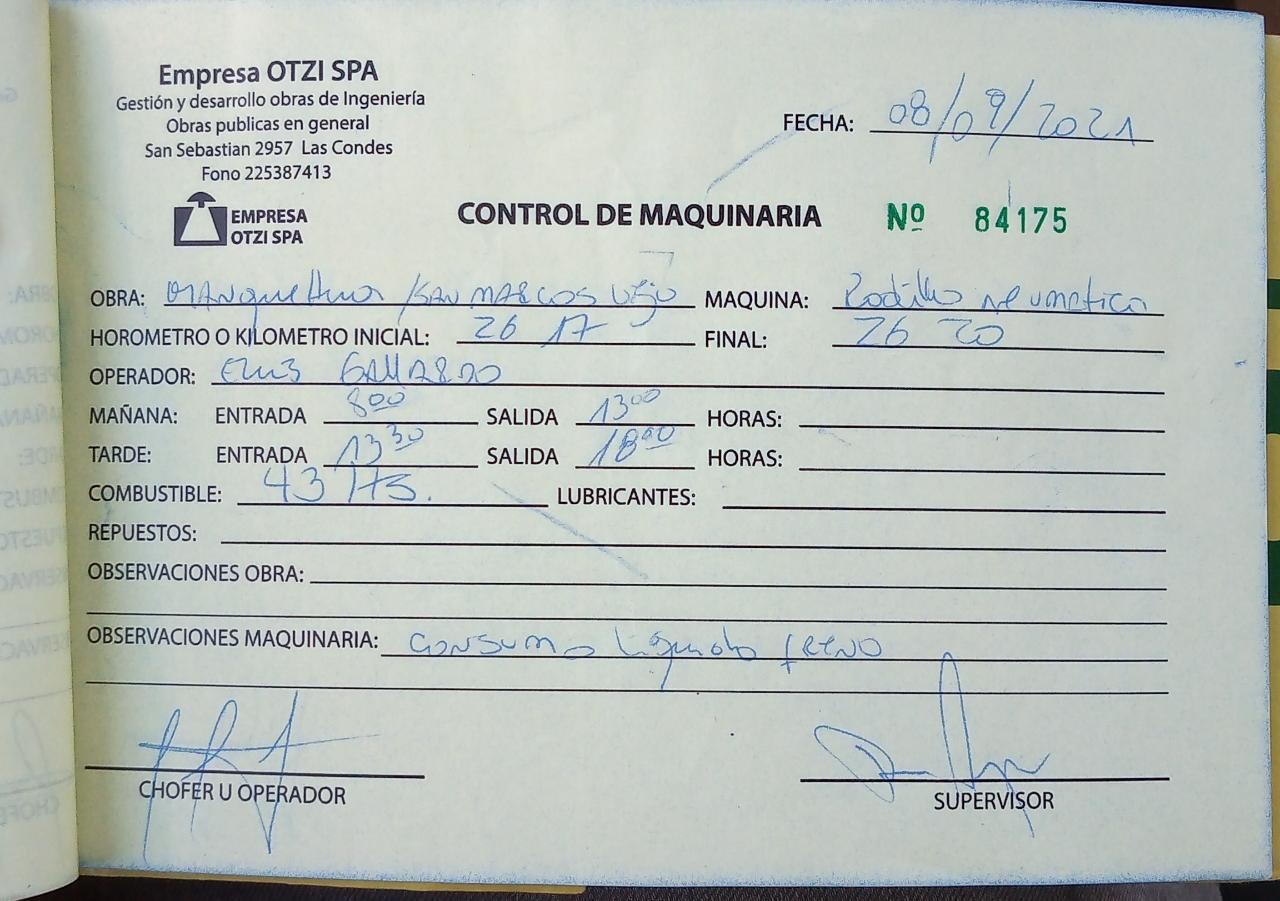 Empresa OTZI SPA
Gestión y desarrollo obras de Ingeniería
Obras publicas en general
San Sebastian 2957 Las Condes
Fono 225387413
EMPRESA
OTZI SPA
FECHA: 08/09/2021
CONTROL DE MAQUINARIA Nº 84175
OBRA: /SAN MARCOS MAQUINA: Rodillo neumatico
HOROMETRO O KILOMETRO INICIAL: 26 17 FINAL: 26 20
OPERADOR: GALLARDO
MAÑANA: ENTRADA 800 SALIDA 1300 HORAS:
TARDE: ENTRADA 1330 SALIDA 1800 HORAS:
COMBUSTIBLE: 43 LUBRICANTES:
REPUESTOS:
OBSERVACIONES OBRA:
OBSERVACIONES MAQUINARIA: Consumo liquido freno
CHOFER U OPERADOR
SUPERVISOR